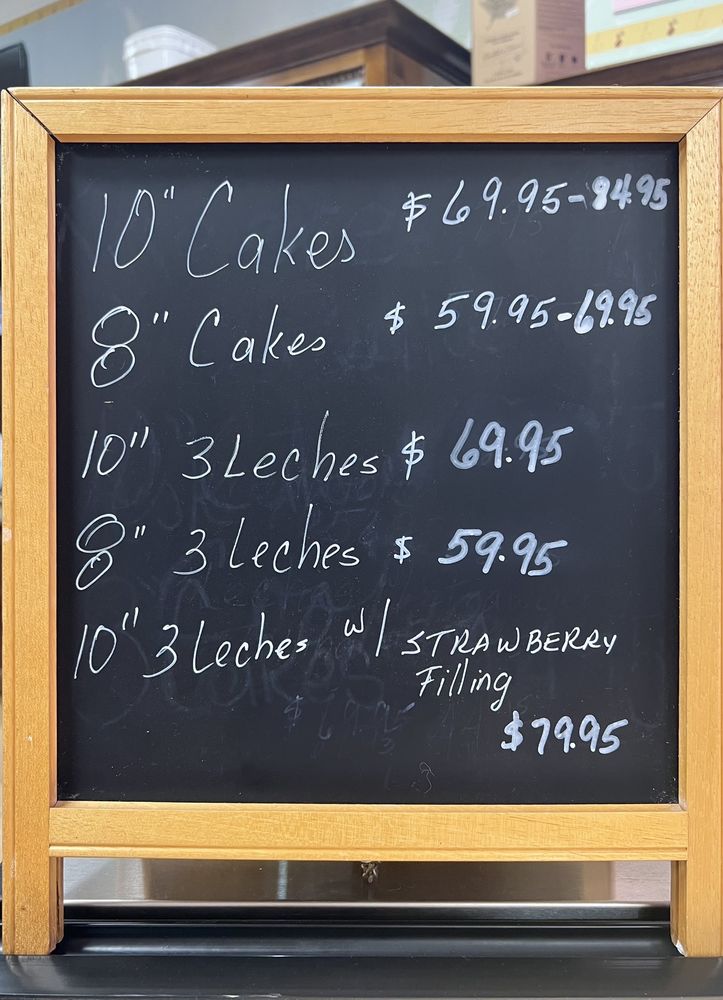 10" Cakes $69.95-84.95
8" Cakes $ 59.95-69.95
10" 3 Leches $ 69.95
8" 3 Leches $ 59.95
10" 3 Leches w/ STRAWBERRY
Filling
$79.95